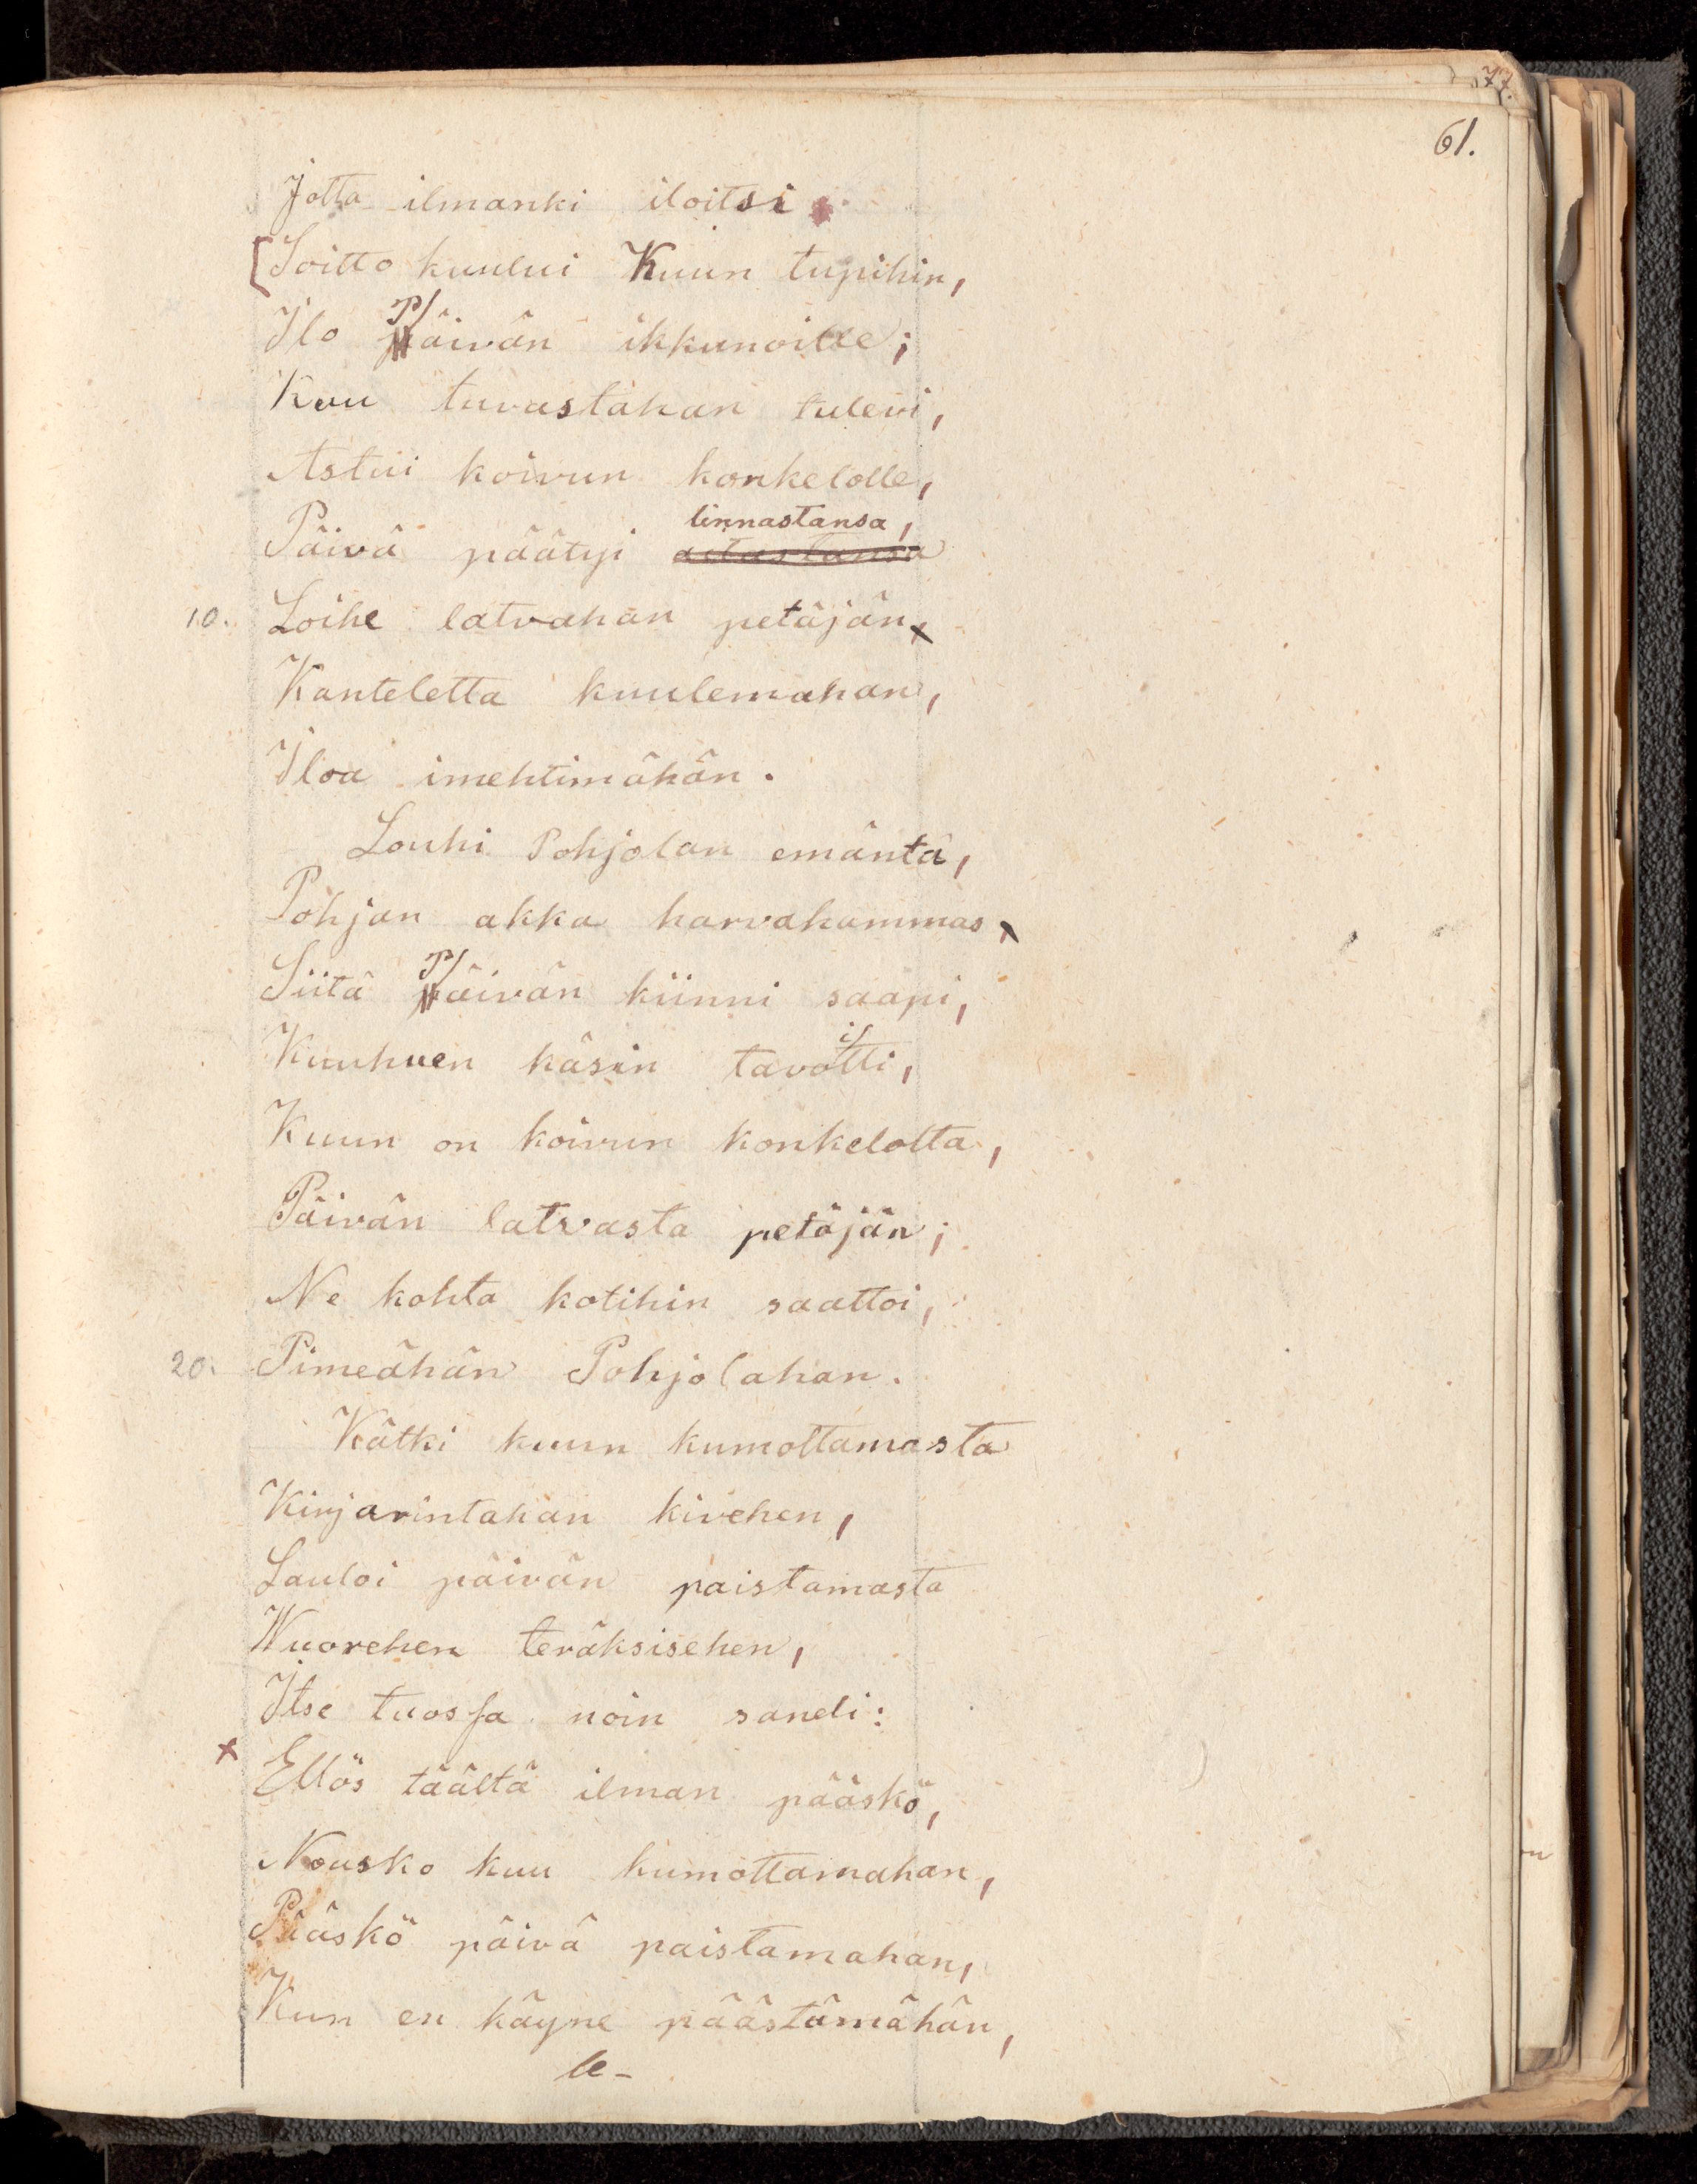 77.
61.
Jotta ilmanki iloitsi
[Soitto kuului Kuun tupihin,
Ilo Päivän ikkunoille;
Kuu tuvastahan tulevi,
Astui koivun konkelolle,
Päivä päätyi linnastansa,
10. Loihe latvahan petäjän
Kanteletta kuulemahan,
Iloa imehtimähän.
Louhi Pohjolan emäntä,
Pohjan akka harvahammas
Siitä Päivän kiinni saapi,
Kuuhuen käsin tavoitti,
Kuun on koivun konkelolta,
Päivän latvasta petäjän;
Ne kohta kotihin saattoi,
20. Pimeähän Pohjolahan.
Kätki kuun kumottamasta
Kirjarintahan kivehen,
Lauloi päivän paistamasta
Wuorehen teräksisehen,
Itse tuossa noin saneli:
x Ellös täältä ilman pääskö,
Nousko kuu kumottamahan,
Pääskö päivä paistamahan,
Kun en käyne päästämähän,
le-